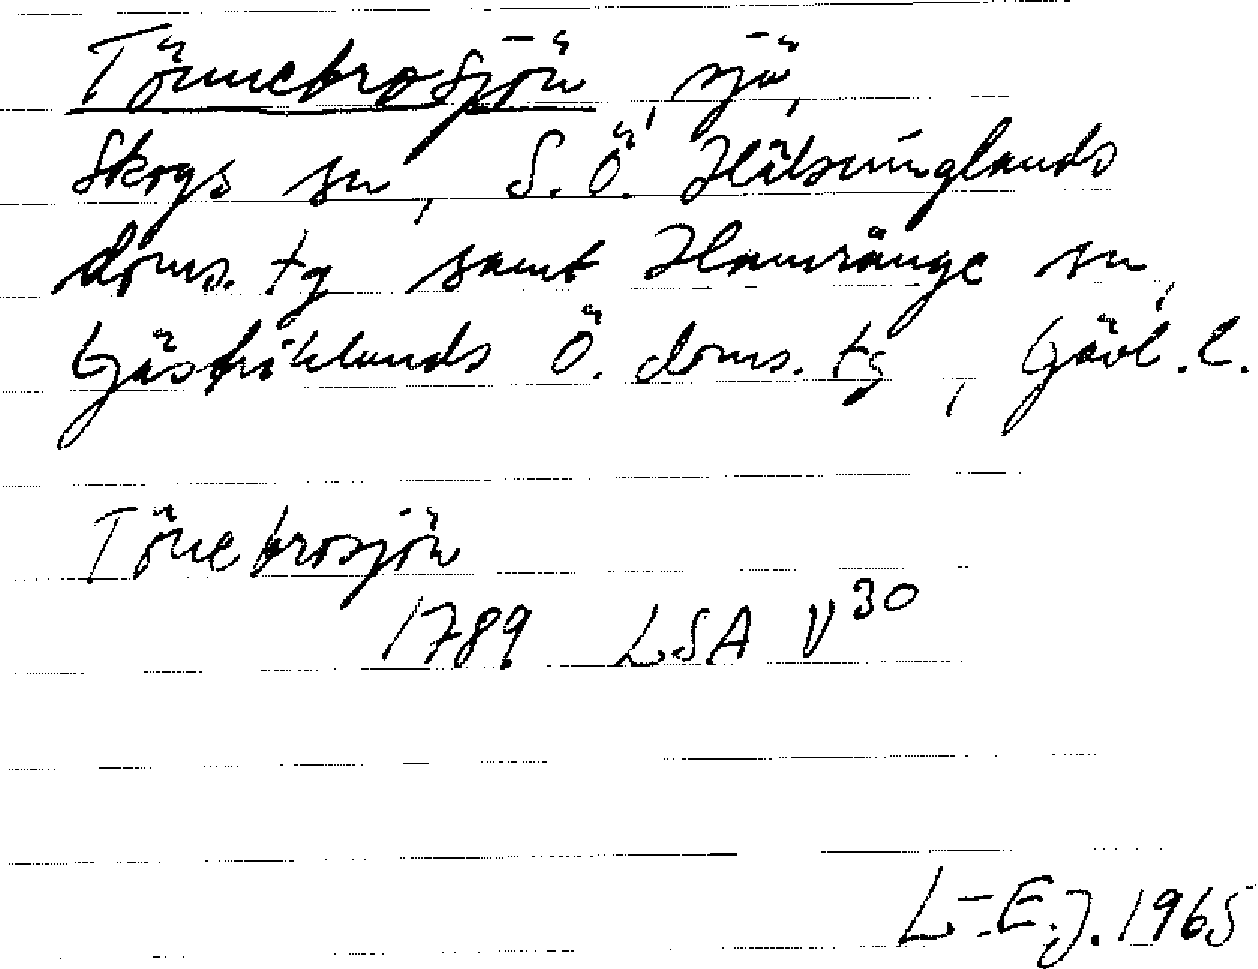 Tönnebrosjön, sjö,
Skogs sn, S. Ö. Hälsinglands
doms. tg samt Hamrånge sn,
Gästriklands Ö. doms. tg, Gävl. l.
Tönebrosjön
1789 LSA V30
L-E. J. 1965